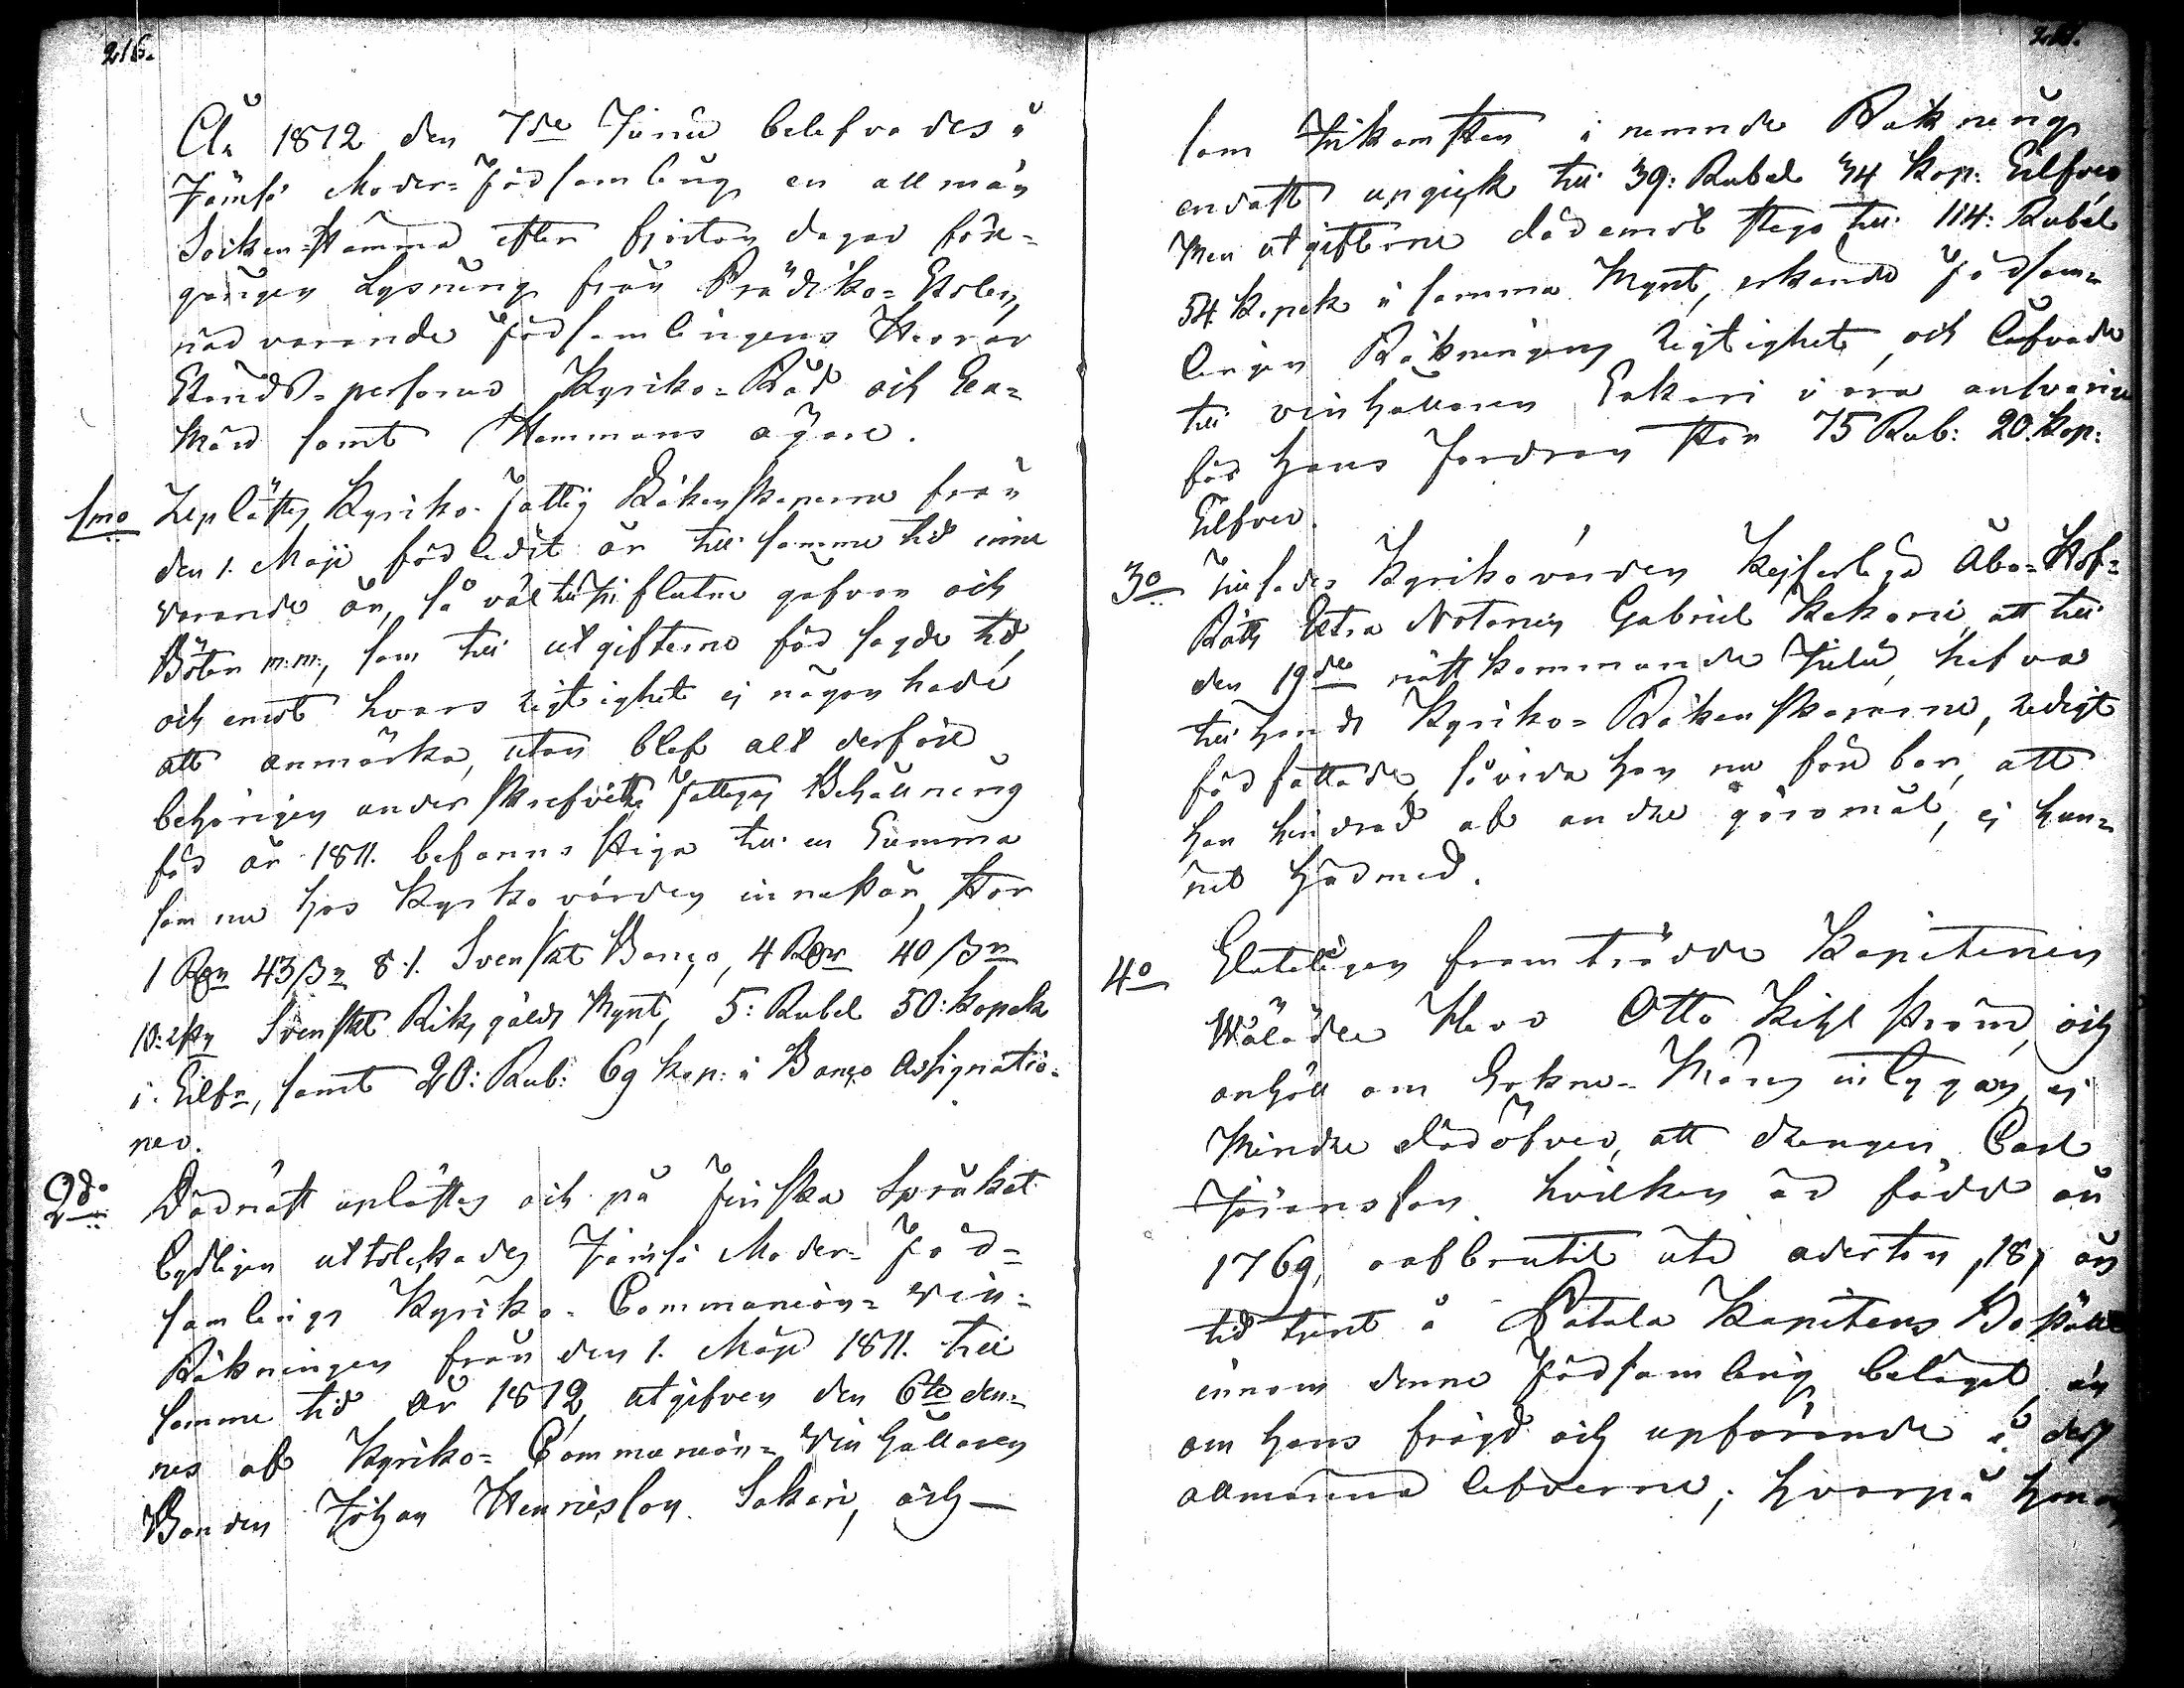 216.
År 1812 den 7de Junii belefvades i
Jämsä Moder-Församling en allmän
Socken-Stämma efter fjorton dagar före-
gången Lysning från Prädiko-Stolen,
närvarande Församlingens Herrar
Stånds-personer, Kyrko-Råd och
Män samt Hemmans ägare.
1mo Uplästes Kyrko- fattig Räkenskaperne från
den 1. Maji förledit år till samma tid inne
varande år, så väl till influtne gåfvor och
Böter m:m:, som till utgifterne för sagde tid,
och emot hvars rigtighet ej någon hade
att anmärka, utan blef alt derföre
behörigen underskrefvit. Fattigas Behållning
för år 1811. befanns stiga till en Summa
som nu hos Kyrkovärden innestår, stor
1 Rdr 43 ß 8 /. Svenskt Banco, 4 Rdr 40 ß
10: Svenskt Riksgälds Mynt, 5: Rubel 50: Kopek
i Silfr, samt 20: Rub: 69 Kop: i Banco Assignatio-
ner.
2do Därnäst uplästes och på finska Språket
tydligen uttolkades Jämsä Moder- För-
samlings Kyrko- Communion- Vin-
Räkningen från den 1. Maji 1811. till
samma tid år 1812, utgifven den 6te den-
nes af Kyrko- Communion- Vinhållaren
Bonden Johan Henricsson Sakari, och
som Inkomsten i nemnde Räkning
endast upgick till 39: Rubel 34 Kop: Silfver
Men utgifterne däremot stego till 114: Rubel
54 Kopek i samma Mynt, erkände Försam-
lingen Räkningens rigtighet, och lofvade
till vinhållaren Sakari vara ansvarig
för hans fordran stor 75 Rub: 20. Kop:
Silfver.
3o Kyrkovärden Kejserliga Åbo- Hof-
Rätts Extra Notarien Gabriel att till
den 19de nästkommande Julii, hafva
tillhands Kyrko- Räkenskaperne, redigt
författade, såvida han nu förebar, att
han hindrad af andre göromål, ej hun-
nit härmed.
4o Slutligen framträdde Kapitenen
Wälädle Herr Otto Kihlström, och
anhöll om Sokne- Mäns utlygan, ej
Mindre däröfver, att drengen Carl
Jöransson hvilken är född år
1769, oafbrutit uti aderton /18/ års
tid tjent å Patala Kapitens Boställe
innom denne Församling beläget, än
om hans frägd och upförande i dess
allmänna lefverne; hvarpå